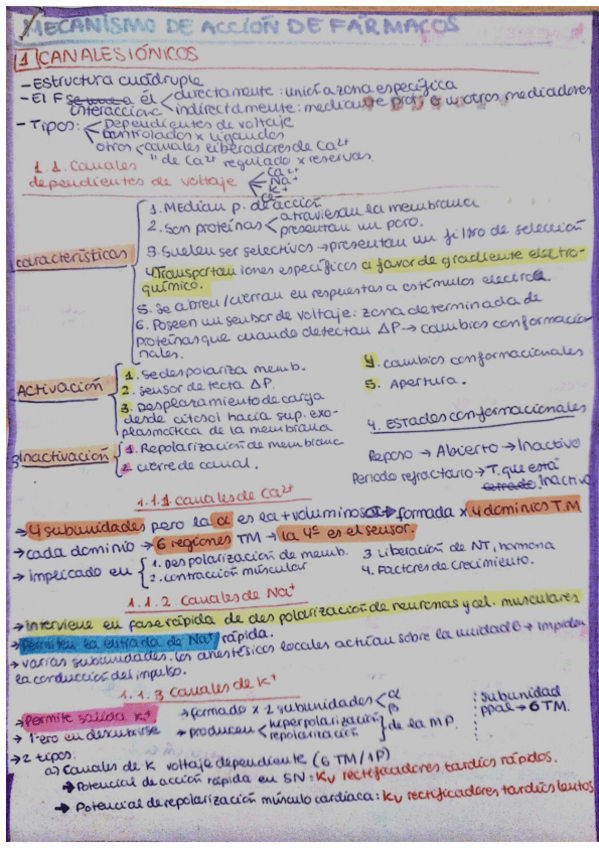 MECANISMO DE ACCIÓN DE FÁRMACOS
1 CANALES IÓNICOS
- Estructura cuádruple
- El F se une a él directamente: unión a zona específica
interacciona indirectamente: mediante prot. G u otros mediadores
- Tipos: Dependientes de voltaje
controlados x ligandos
otros canales liberadores de Ca2+
" de Ca2+ regulado x reservas.
1.1. Canales dependientes de voltaje
Ca2+
Na+
K+
Cl-
características
1. Median p. de acción
2. Son proteínas atraviesan la membrana
presentan un poro.
3. Suelen ser selectivos → presentan un filtro de selección
4. Transportan iones específicos a favor de gradiente electro-
químico.
5. Se abren/cierran en respuestas a estímulos electrc
6. Poseen un sensor de voltaje: zona determinada de
proteínas que cuando detectan ΔP → cambios conformacio
nales.
Activación
1. Se despolariza memb.
2. Sensor detecta ΔP.
3. Desplazamiento de carga
desde citosol hacia sup. exo-
plasmática de la membrana
4. cambios conformacionales
5. Apertura.
3 Inactivación
1. Repolarización de membrana
2. cierre de canal.
4. Estados conformacionales
Reposo → Abierto → Inactivo
Periodo refractario → T. que está
cerrado inactivo
1.1.1 canales de Ca2+
→ 4 subunidades pero la α es la + voluminosa → formada x 4 dominios T.M
→ cada dominio → 6 regiones TM → la 4ª es el sensor.
→ implicado en 1. Despolarización de memb. 3 Liberación de NT, hormona
2. contracción múscular 4. Factores de crecimiento.
1.1.2. Canales de Na+
→ Interviene en fase rápida de despolarización de neuronas y cel. musculares
→ Permiten la entrada de Na+ rápida.
→ varias subunidades. Los anestésicos locales actúan sobre la unidad 6 → impiden
la conducción del impulso.
1.1.3 Canales de K+
→ Permite salida K+ → formado x 2 subunidades α
β subunidad
ppal → 6 TM.
→ 1-ero en descubrirse → producen hiperpolarización
repolarización de la MP.
→ 2 tipos:
a) Canales de K voltaje dependiente (6 TM/1P)
→ Potencial de acción rápida en SN: Kv rectificadores tardíos rápidos.
→ Potencial de repolarización músculo cardíaca: Kv rectificadores tardíos lentos